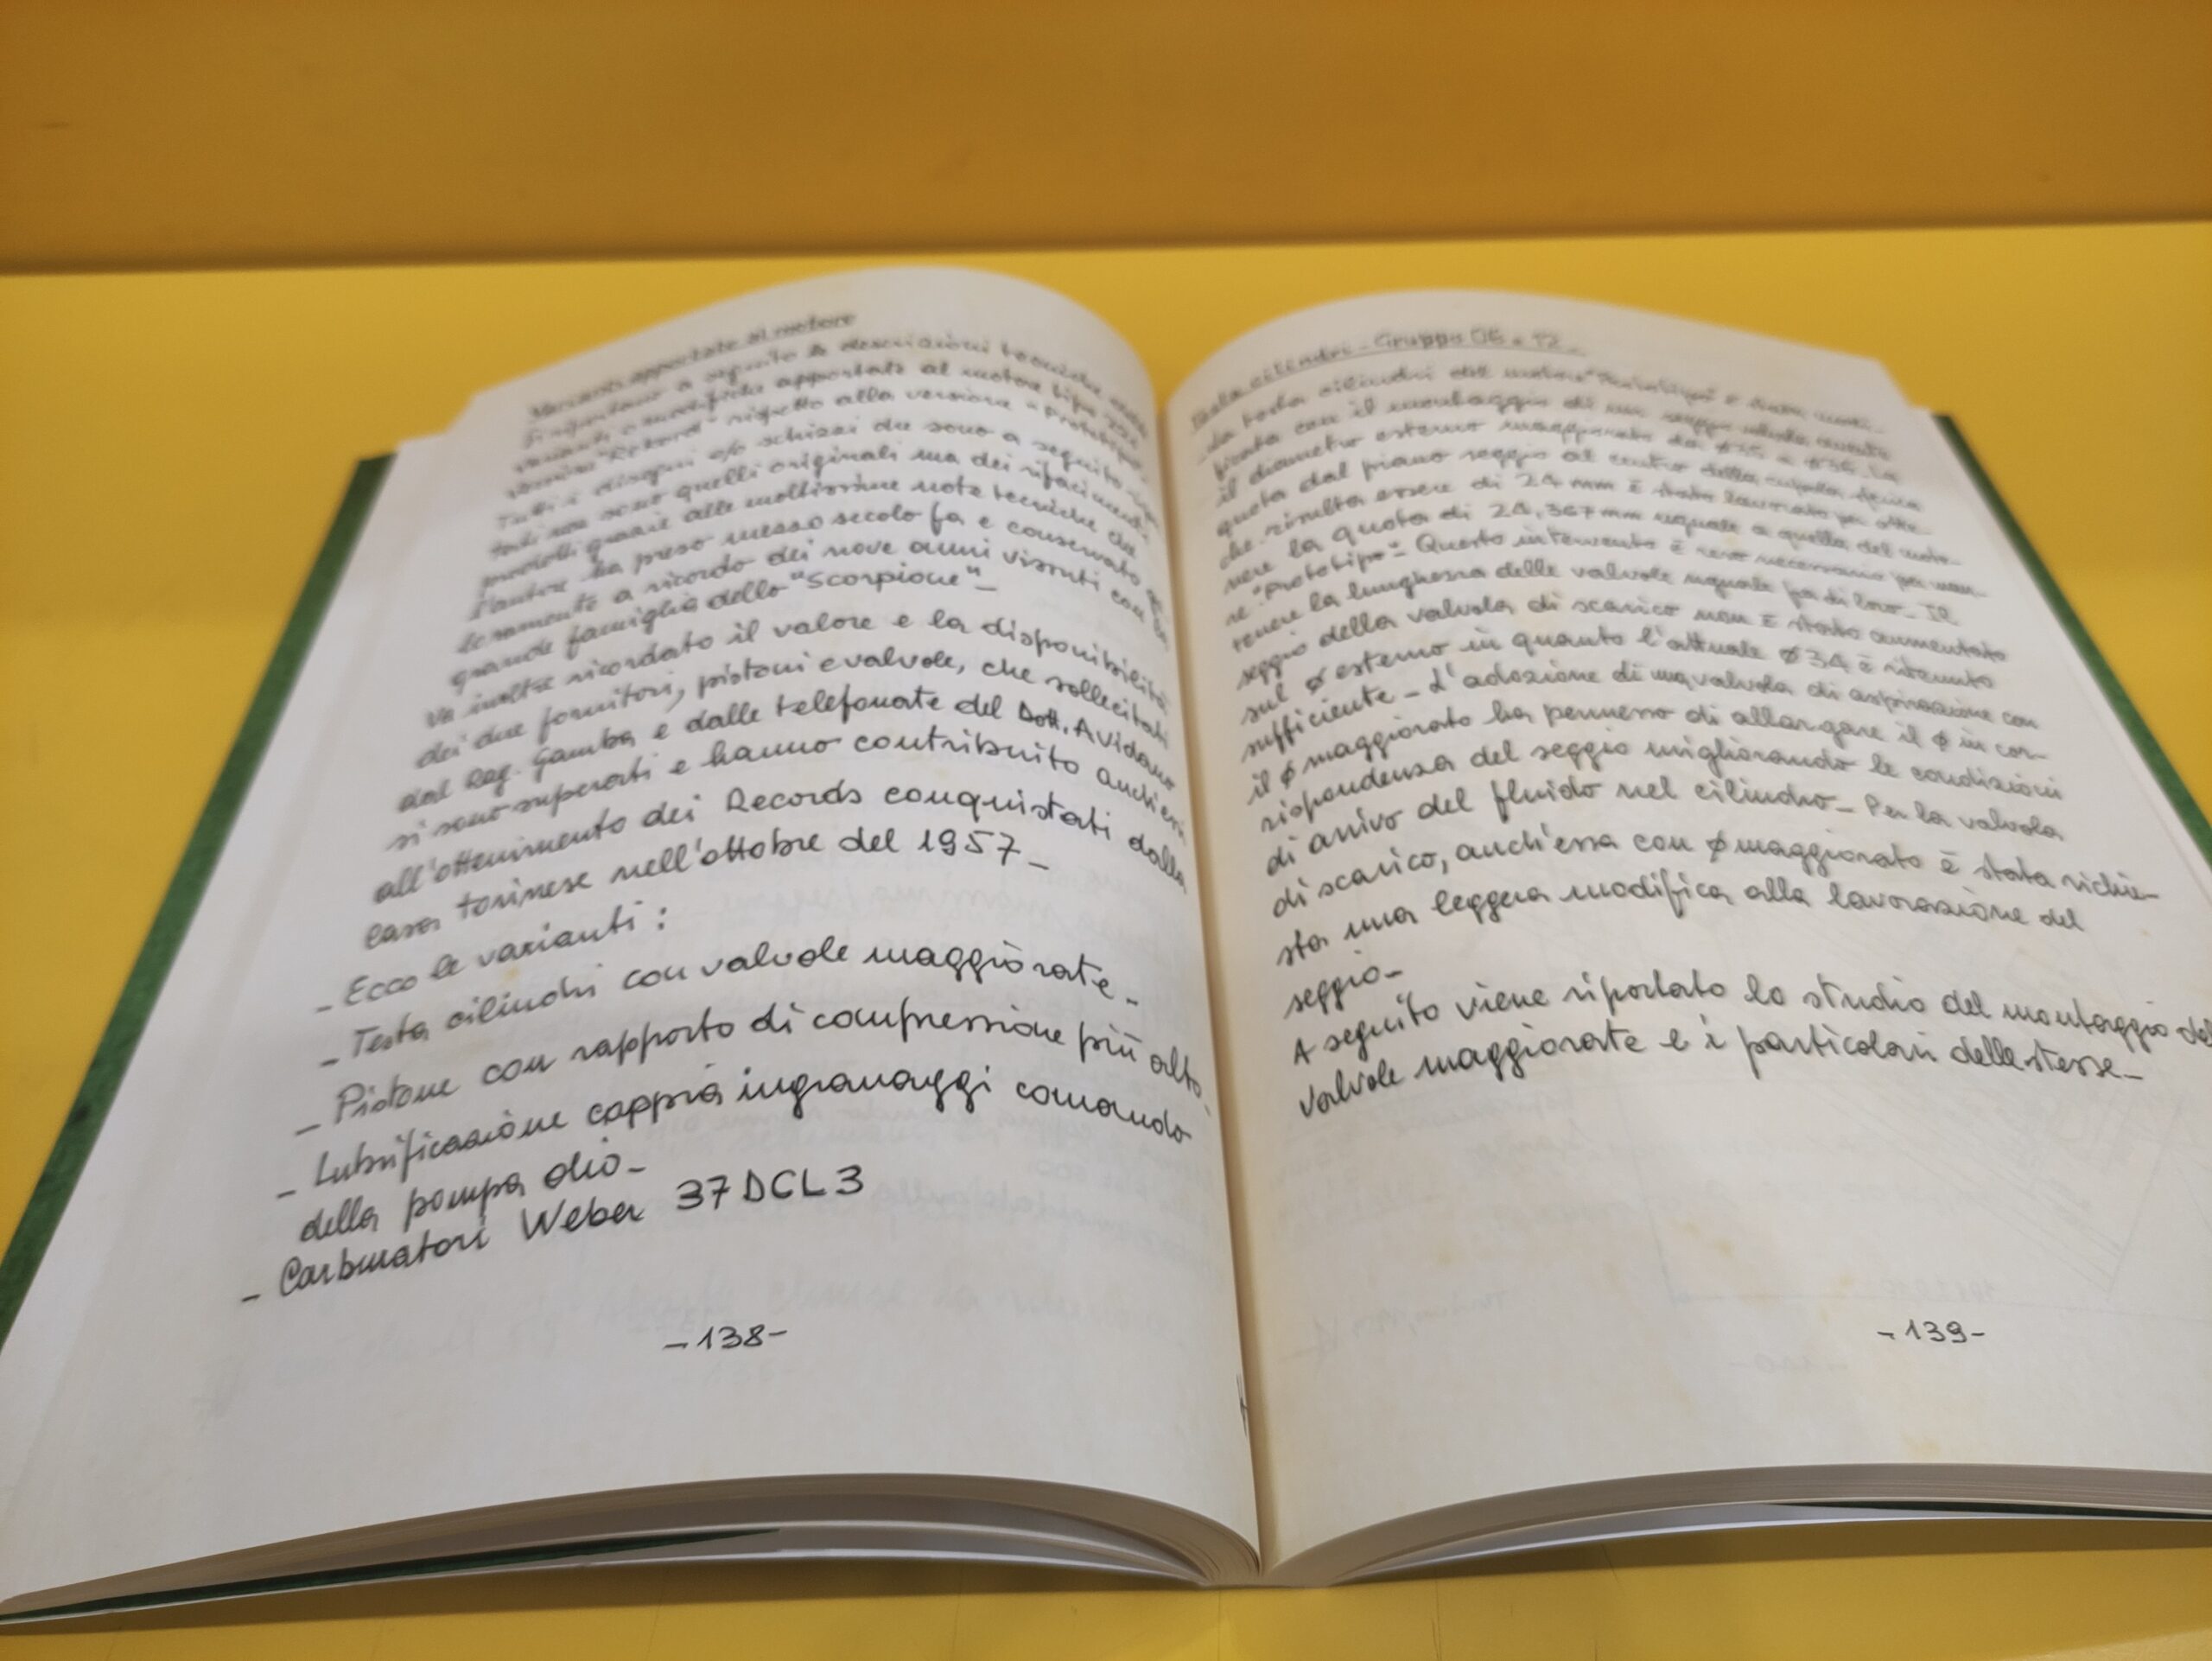 apportate al motore
Si riportano a seguito le descrizioni tecniche
varianti o modifiche apportate al motore tipo
versione "Record" rispetto alla versione "Prototipo"
Tutti i disegni e/o schizzi che sono a seguito
tati non sono quelli originali ma dei rifacimenti
prodotti grazie alle moltissime note tecniche che
l'autore ha preso mezzo secolo fa e conservato
a ricordo dei nove anni vissuti con la
grande famiglia dello "Scorpione" –
Va inoltre ricordato il valore e la disponibilità
dei due fornitori, pistoni e valvole, che sollecitati
dal Rag. Gamba e dalle telefonate del Dott. Avidano
si sono superati e hanno contribuito anch'essi
all'ottenimento dei Records conquistati dalla
casa torinese nell'ottobre del 1957 –
– Ecco le varianti :
– Testa cilindri con valvole maggiorate –
– Pistone con rapporto di compressione più alto –
– Lubrificazione coppia ingranaggi comando
della pompa olio –
– Carburatori Weber 37 DCL3
– 138 –
Testa cilindri – Gruppo
La testa cilindri del motore è stata modi-
ficata con il montaggio di un seggio valvola avente
il diametro esterno
quota dal piano seggio al centro della
che risulta essere di 24 mm è stato lavorato per otte-
nere la quota di 24,367 mm uguale a quella del moto-
re "Prototipo" – Questo intervento è reso necessario per man-
tenere la lunghezza delle valvole uguale fra di loro – Il
seggio della valvola di scarico non è stato aumentato
sul ø esterno in quanto l'attuale ø 34 è ritenuto
sufficiente – L'adozione di una valvola di aspirazione con
il ø maggiorato ha permesso di allargare il ø in cor-
rispondenza del seggio migliorando le condizioni
di arrivo del fluido nel cilindro – Per la valvola
di scarico, anch'essa con ø maggiorato è stata richie-
sta una leggera modifica alla lavorazione del
seggio –
A seguito viene riportato lo studio del montaggio del
valvole maggiorate e i particolari delle stesse –
– 139 –